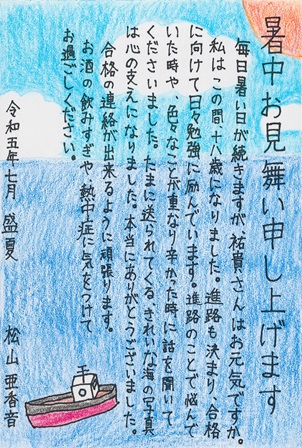 暑中お見舞い申し上げます
毎日暑い日が続きますが、祐貴さんはお元気ですか。
私はこの間、十八歳になりました。進路も決まり、合格
に向けて日々勉強に励んでいます。進路のことで悩んで
いた時や、色々なことが重なり辛かった時に話を聞いて
くださいました。たまに送られてくる、きれいな海の写真
は心の支えになりました。本当にありがとうございました。
合格の連絡が出来るように頑張ります。
お酒の飲みすぎや、熱中症に気をつけて
お過ごしください。
令和五年七月 盛夏
松山 亜香音